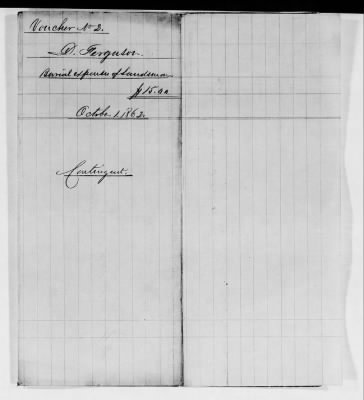 Voucher No 2.
D. Ferguson.
Burial expenses of Landsman
$15.00
Octobe 1, 1862.
Contingent.